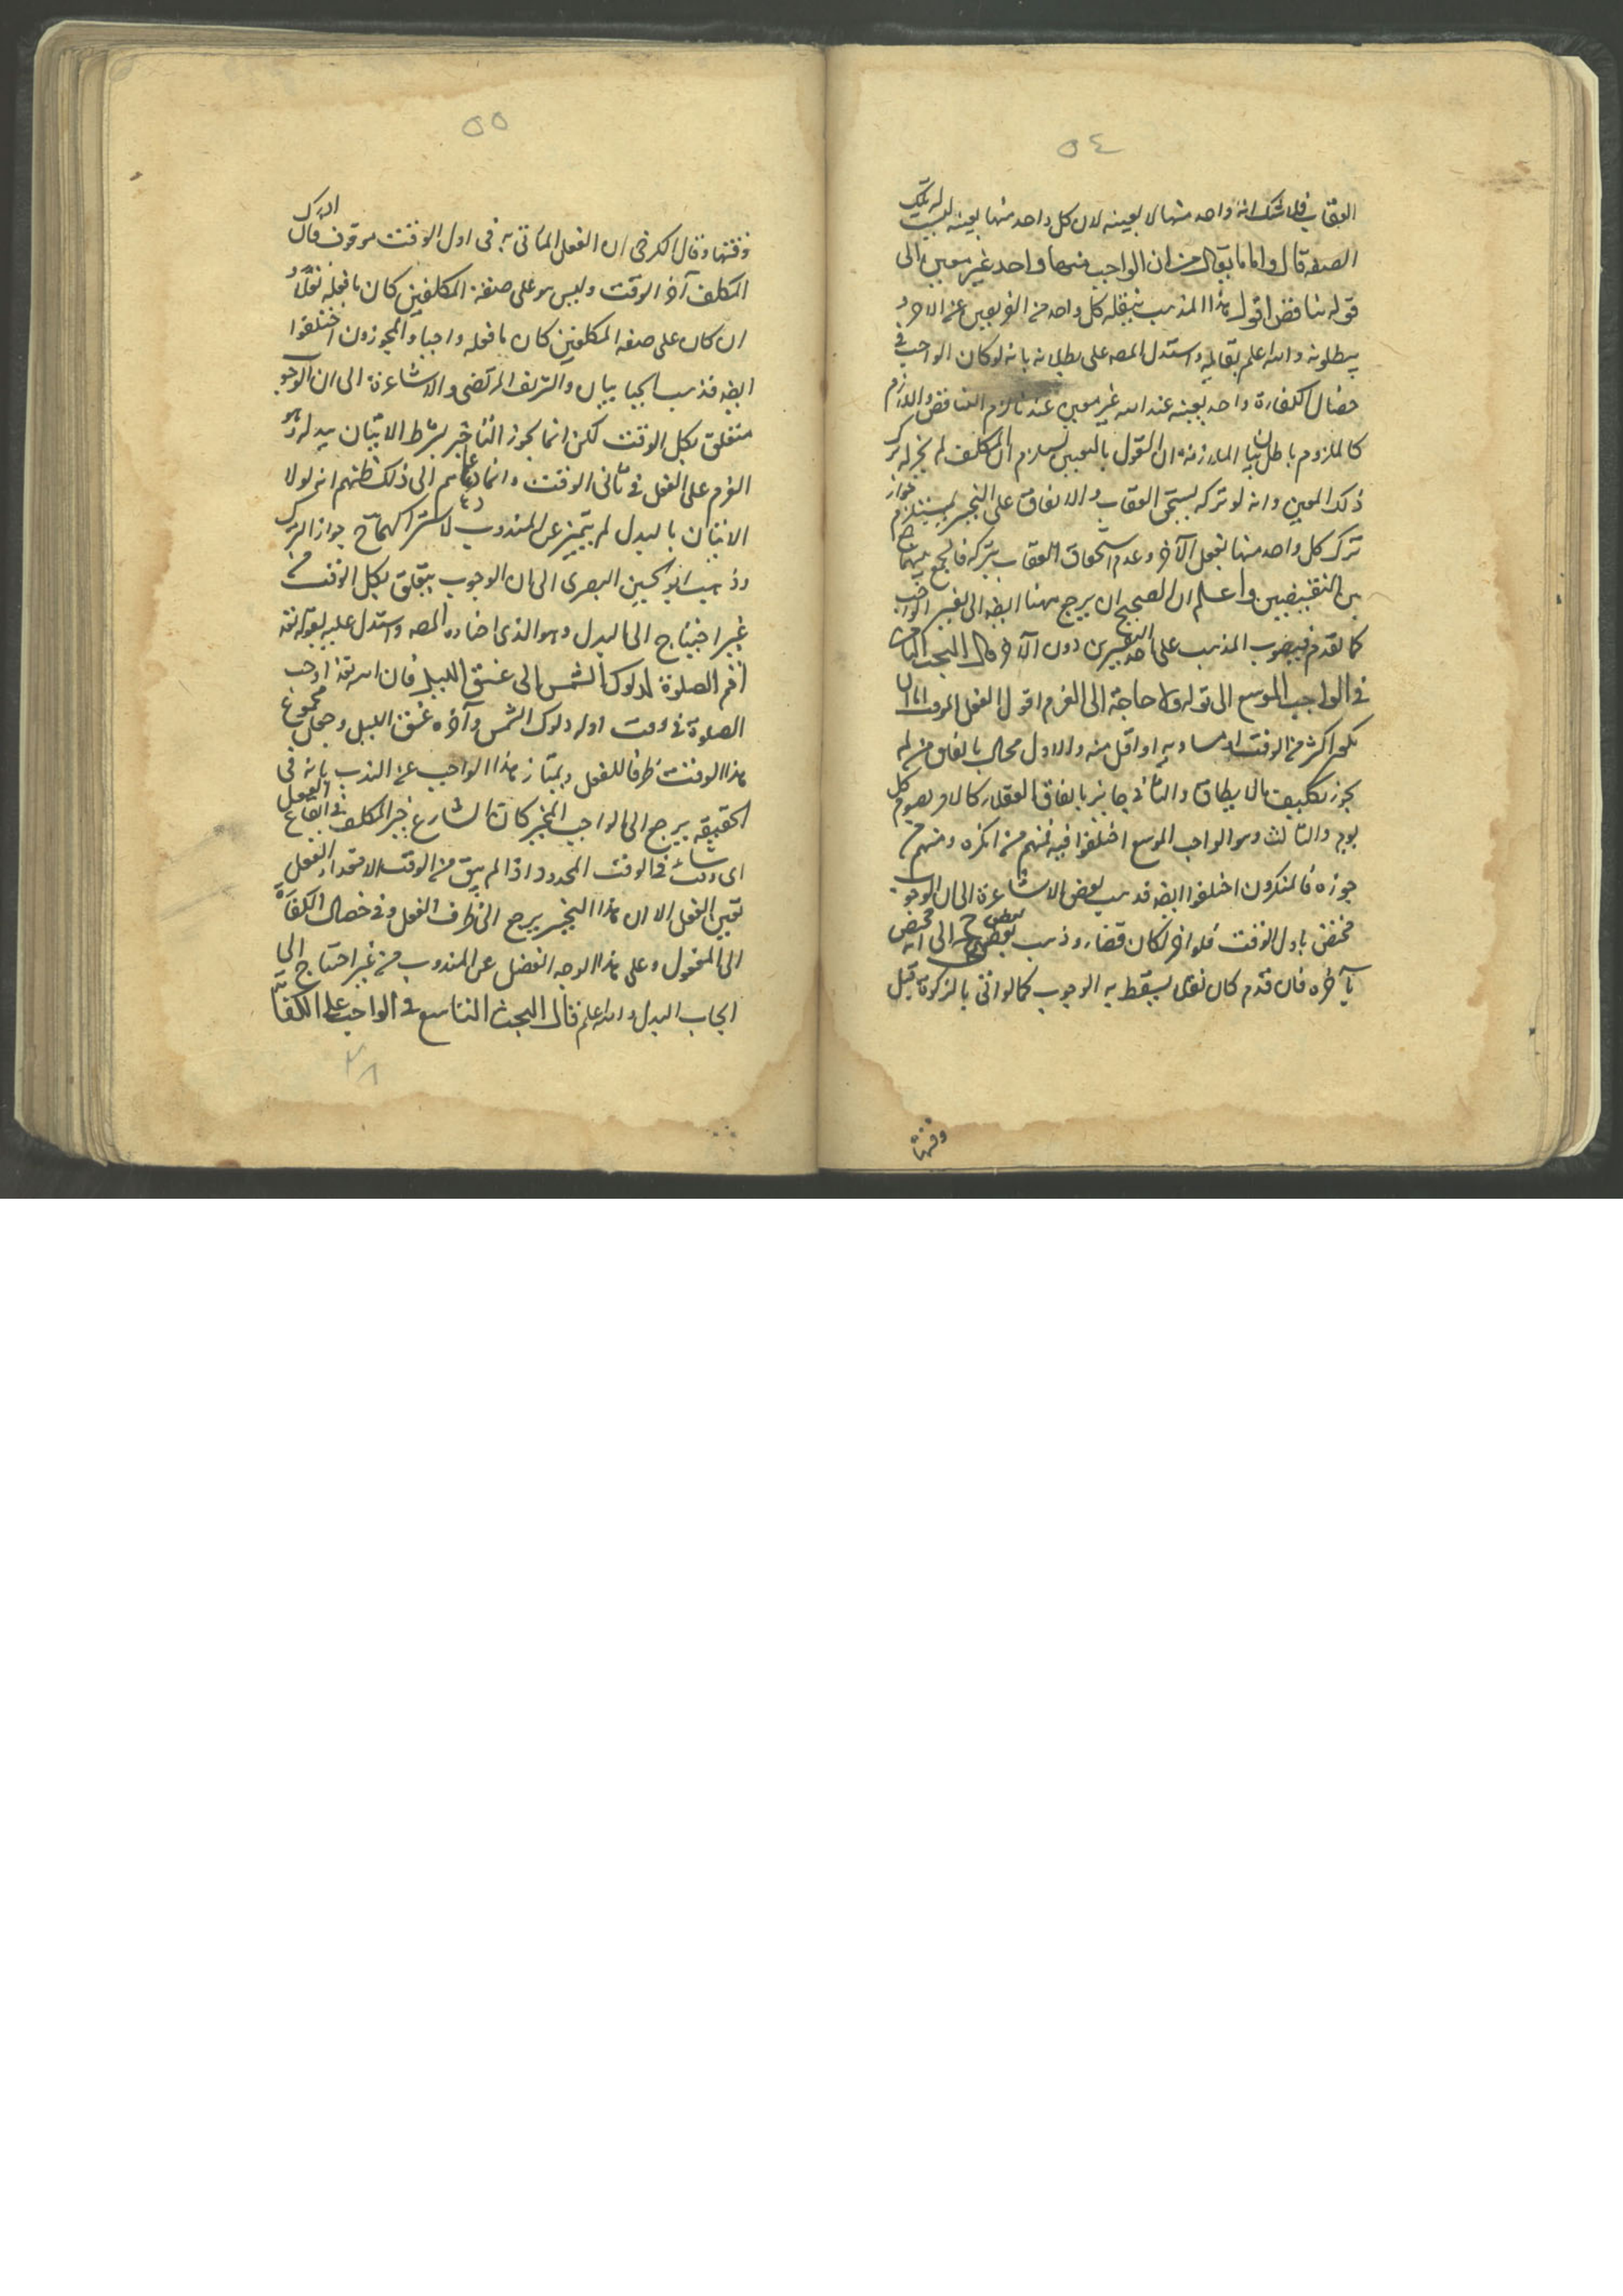 ٥٤
العقاب فلا شك انه واحد منها لا بعينه لان كل واحد منها بعينه ليست له تلك
الصفة قال واما ما يقال من ان الواجب منهما واحد غير معين الى
قوله تناقض اقول هذا المذهب ينقله كل واحد من الفريقين عن الاخر و
يبطلونه والله اعلم بقائله واستدل المصه على بطلانه بانه لو كان الواجب في
خصال الكفارة واحد بعينه عند الله غير معين عندنا لزم التناقض واللازم
كالملزوم باطل بيان الملازمة ان القول بالتعيين يستلزم ان المكلف لم يجز له ترك
ذلك المعين وانه لو تركه يستحق العقاب والاتفاق على التخيير يستلزم جواز
ترك كل واحد منها بفعل الآخر وعدم استحقاق العقاب بتركه فالجمع بينهما جمع
بين النقيضين واعلم ان الصحيح ان يرجع ههنا ايضه الى تفسير الواجب
كما تقدم فيصوب المذهب على احد التفسيرين دون الآخر قال البحث الثامن
في الواجب الموسع الى قوله ولا حاجة الى العزم اقول الفعل الموقت اما ان
يكون اكثر من الوقت او مساويه او اقل منه والاول محال باتفاق من لم
يجوز تكليف مالا يطاق والثاني جايز باتفاق العقلاء كالامر بصوم كل
يوم والثالث وهو الواجب الموسع اختلفوا فيه فمنهم من انكره ومنهم من
جوزه فالمنكرون اختلفوا ايضه فذهب بعض الاشاعرة الى ان الوجوب
مختص باول الوقت فلو اخر كان قضاء وذهب بعض الى انه مختص
بآخره فان قدم كان نفلا يسقط به الوجوب كما لو اتى بالزكوة قبل
وقتها
٥٥
وقتها وقال الكرخي ان الفعل المأتي به في اول الوقت موقوف فان ادرك
المكلف آخر الوقت وليس هو على صفة المكلفين كان ما فعله نفلا و
ان كان على صفة المكلفين كان ما فعله واجبا والمجوزون اختلفوا
ايضه فذهب الجبايبان والشريف المرتضى والاشاعرة الى ان الوجوب
متعلق بكل الوقت لكن انما يجوز التأخير بشرط الاتيان ببدله وهو
العزم على الفعل في ثاني الوقت وانما دعاهم الى ذلك ظنهم انه لولا
الاتيان بالبدل لم يتميز عن المندوب لاشتراكهما في جواز الترك
وذهب ابو الحسين البصرى الى ان الوجوب يتعلق بكل الوقت من
غير احتياج الى البدل وهو الذى اختاره المصه واستدل عليه بقوله تعه
اقم الصلوة لدلوك الشمس الى غسق الليل فان الله تعه اوجب
الصلوة في وقت اوله دلوك الشمس وآخره غسق الليل وجعل مجموع
هذا الوقت ظرفا للفعل ويمتاز هذا الواجب عن الندب بانه في
الحقيقه يرجع الى الواجب المخير كان الشارع خير المكلف في ايقاع الفعل
اى وقت شاء في الوقت المحدود واذا لم يبق من الوقت الا مقدار الفعل
تعين الفعل الا ان هذا التخيير يرجع الى ظرف الفعل وفي خصال الكفارة
الى المفعول وعلى هذا الوجه انفصل عن المندوب من غير احتياج الى
ايجاب البدل والله اعلم قال البحث التاسع في الواجب على الكفاية
٢٨